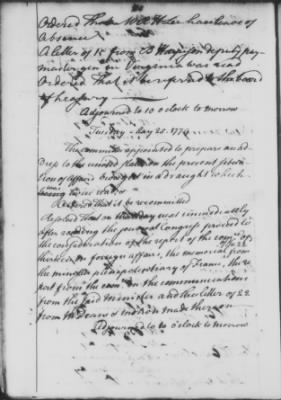 Ordered That Mr Hill have leave of
Absence
A letter of 15 from B Harrison deputy pay
master gen in Virginia was read
Ordered That it be referred to the board
of treasury
Adjourned to 10 o Clock to morrow
Tuesday May 25. 1779
The committee appointed to prepare an ad
dress to the united states on the present situa
tion of affairs brought in a draught which
was read
Ordered that it be recommitted
Resolved That on next immediately
after reading the journal Congress proceed to
the consideration of the report of the comee of
thirteen on foreign affairs, the memorial from
the minister plenipotentiary of France, the re
port from the com: on the communications
from the said minister and the letter of 22
from Mr Deane & motions made thereon
Adjourned to 10 o Clock to morrow